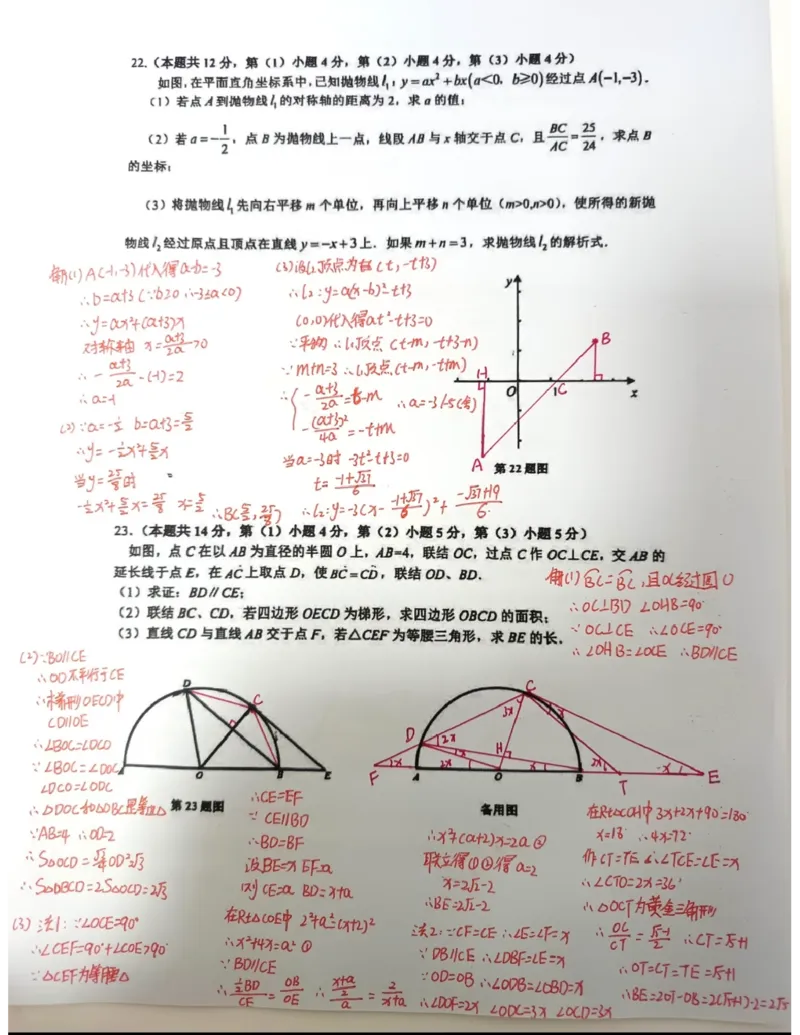 22.（本题共 12 分，第（1）小题 4 分，第（2）小题 4 分，第（3）小题 4 分）
如图,在平面直角坐标系中,已知抛物线l₁：y=ax²+bx(a<0, b≥0)经过点 A(-1,-3).
（1）若点 A 到抛物线l₁的对称轴的距离为 2，求 a 的值；
（2）若 a=-1/2，点 B 为抛物线上一点，线段 AB 与 x 轴交于点 C，且 BC/AC=25/24，求点 B
的坐标；
（3）将抛物线 l₁ 先向右平移 m 个单位，再向上平移 n 个单位（m>0,n>0），使所得的新抛
物线 l₂ 经过原点且顶点在直线 y=-x+3上．如果 m+n=3，求抛物线 l₂ 的解析式．
解(1) A(-1,-3)代入得a-b=-3
∴b=a+3 (∵b≥0 ∴-3≤a<0)
∴y=ax²+(a+3)x
∴a=-1
(2)∵a=-1/2 b=a+3=5/2
∴y=-1/2x²+5/2x
当y=25/8时
-1/2x²+5/2x=25/8 x=5/2
∴B(5/2, 25/8)
(t,-t+3)
(0,0)代入得at²-t+3=0
∵平移 ∴l₁顶点(t-m,-t+3-n)
∵m+n=3 ∴l₁顶点(t-m,-t+m)
当a=-3时 -3t²-t+3=0
t=(-1+√37)/6
∴l₂:y=-3(x-(-1+√37)/6)²+(-√37+19)/6
y
B
H
O
1
C
x
A
第22题图
23.（本题共 14 分，第（1）小题 4 分，第（2）小题 5 分，第（3）小题 5 分）
如图，点 C 在以 AB 为直径的半圆 O 上，AB=4，联结 OC，过点 C 作 OC⊥CE，交 AB 的
延长线于点 E，在 AC 上取点 D，使 BC=CD，联结 OD、BD．
（1）求证：BD∥CE；
（2）联结 BC、CD，若四边形 OECD 为梯形，求四边形 OBCD 的面积；
（3）直线 CD 与直线 AB 交于点 F，若△CEF 为等腰三角形，求 BE 的长．
∴OC⊥BD ∠OHB=90°
∵OC⊥CE ∴∠OCE=90°
∴∠OHB=∠OCE ∴BD∥CE
(2)∵BD∥CE
∴OD不平行于CE
∴梯形OECD中
CD∥OE
∴∠BOC=∠DCO
∵∠BOC=∠DOC
∠DCO=∠ODC
∵AB=4 ∴OD=2
∴S△OCD=√3/4OD²=√3
(3) 法1:∵∠OCE=90°
∴∠CEF=90°+∠COE>90°
∵△CEF为等腰△
D
C
A
O
B
E
第23题图
∴CE=EF
∵CE∥BD
∴BD=BF
设BE=x EF=a
则CE=a BD=x+a
在Rt△COE中 2²+a²=(x+2)²
∴x²+4x=a² ①
∵BD∥CE
C
3x
x
D
2x
x
H
F
x
A
2x
O
x
B
2x
T
x
E
备用图
∴x²+(a+2)x=2a ②
联立得①②得 a=2
x=2√2-2
∴BE=2√2-2
法2:∵CF=CE ∴∠E=∠F=x
∵DB∥CE ∴∠DBF=∠E=x
∵OD=OB ∴∠ODB=∠OBD=x
∴∠DOF=2x ∠ODC=3x ∠OCD=3x
在Rt△COH中 3x+2x+90°=180°
x=18° ∴4x=72°
∴∠CTO=2x=36°
∴△OCT为黄金三角形
∴OC/CT=(√5-1)/2 ∴CT=√5+1
∴OT=CT=TE=√5+1
∴BE=2OT-OB=2(√5+1)-2=2√5